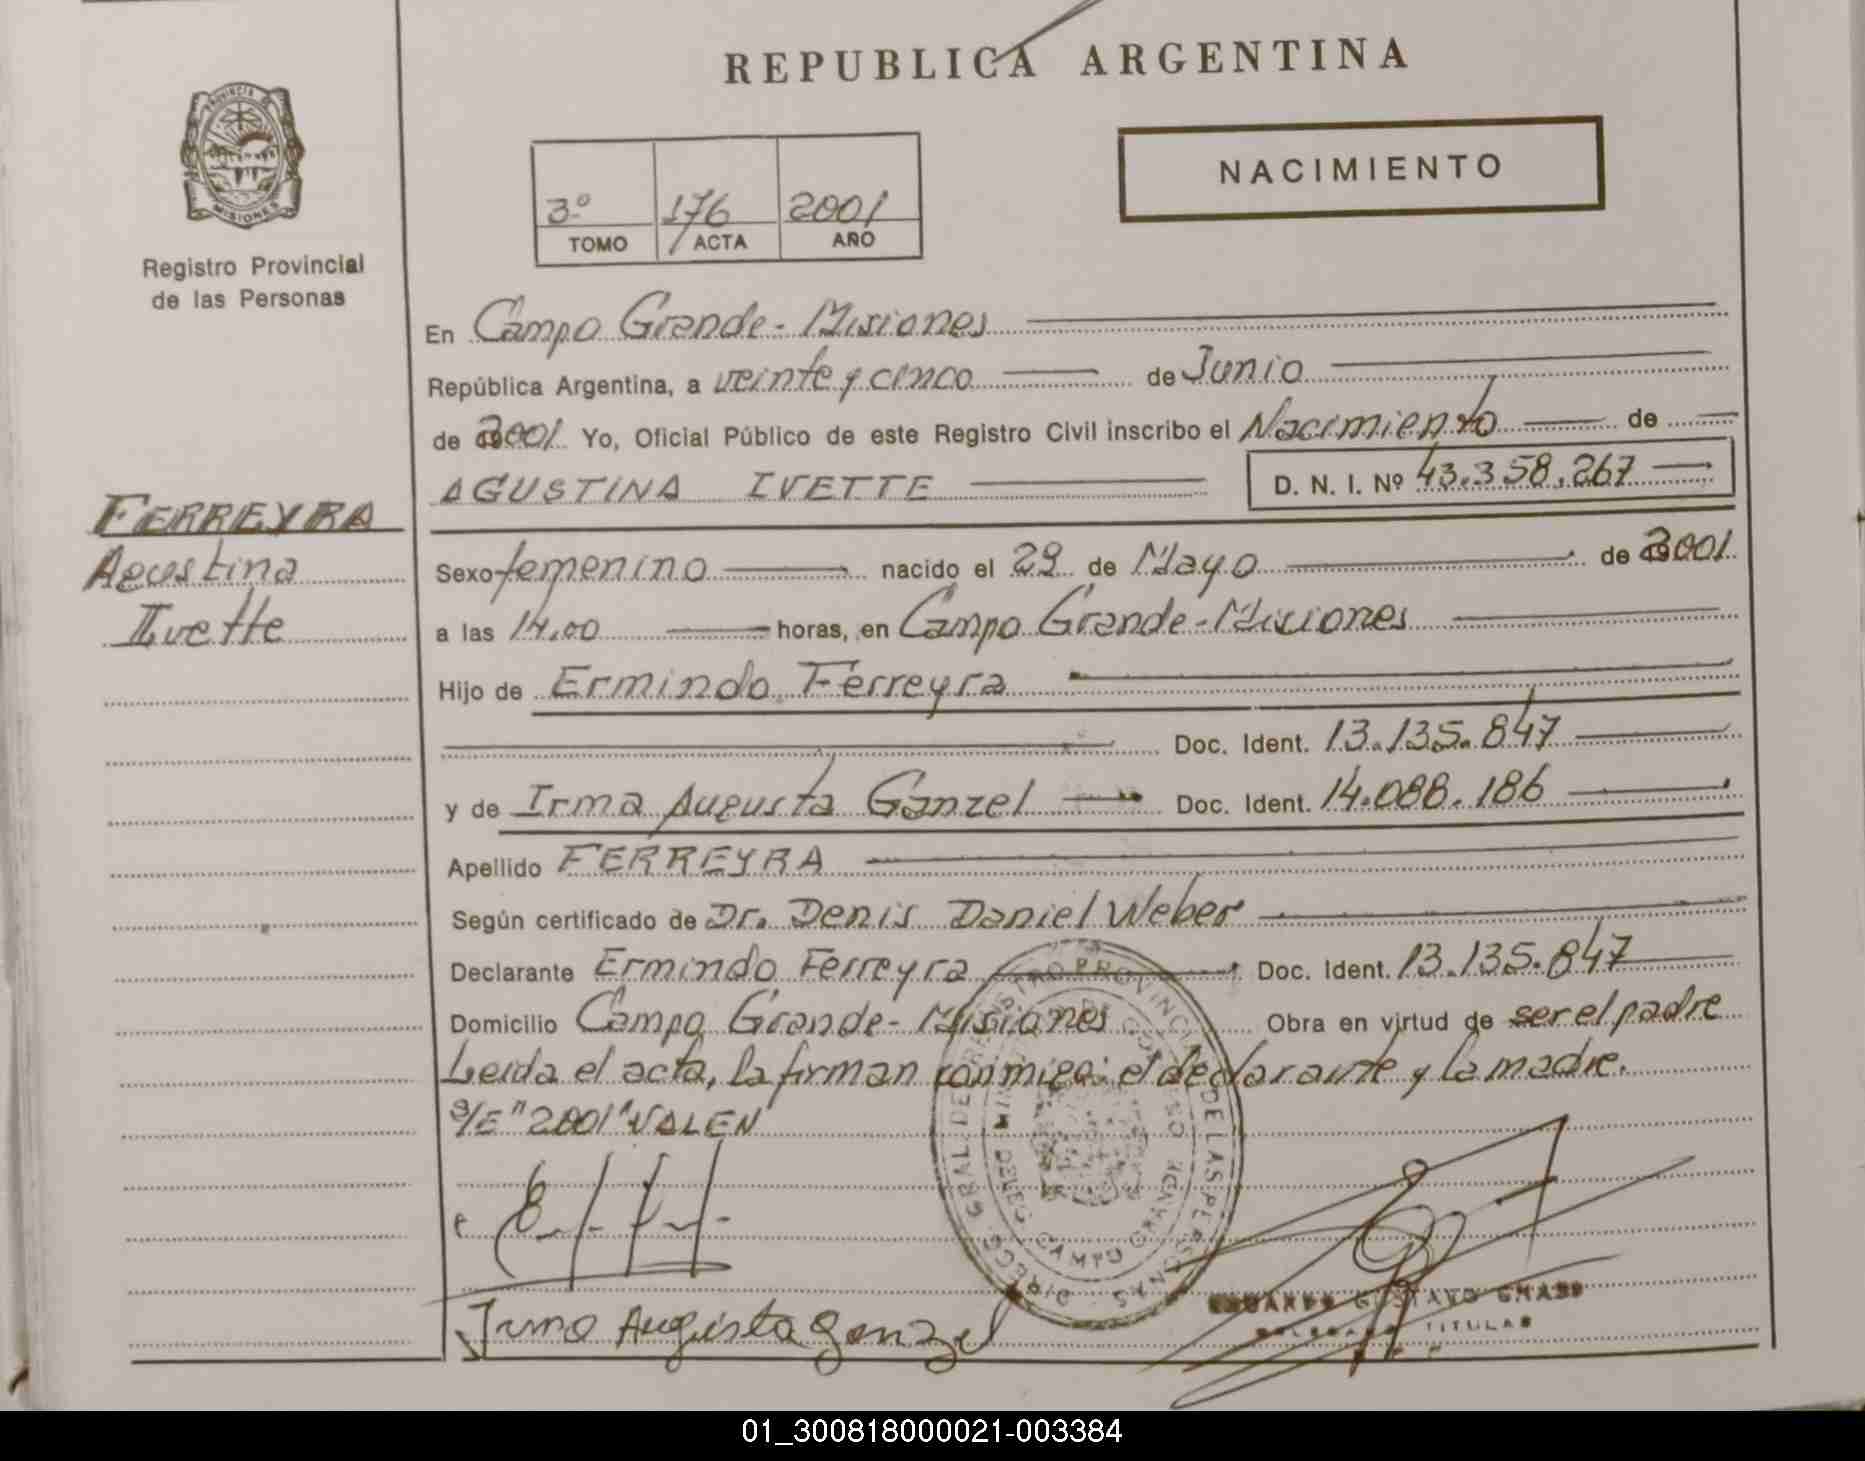 REPUBLICA ARGENTINA
PROVINCIA DE
MISIONES
Registro Provincial
de las Personas
NACIMIENTO
3º 176 2001
TOMO ACTA AÑO
En Campo Grande - Misiones
República Argentina, a veinte y cinco de Junio
de 2001 Yo, Oficial Público de este Registro Civil inscribo el Nacimiento de
AGUSTINA IVETTE D. N. I. Nº 43.358.267
FERREYRA
Agustina
Ivette
Sexo femenino nacido el 29 de Mayo de 2001
a las 14.00 horas, en Campo Grande - Misiones
Hijo de Ermindo Ferreyra
Doc. Ident. 13.135.847
y de Irma Augusta Ganzel Doc. Ident. 14.088.186
Apellido FERREYRA
Según certificado de Dr. Denis Daniel Weber
Declarante Ermindo Ferreyra Doc. Ident. 13.135.847
Domicilio Campo Grande - Misiones Obra en virtud de ser el padre
Leida el acta, la firman conmigo: el declarante y la madre.
S/E "2001" VALEN
DELEG. CAMPO GRANDE
Irma Augusta Ganzel
GUSTAVO
TITULAR
01_300818000021-003384